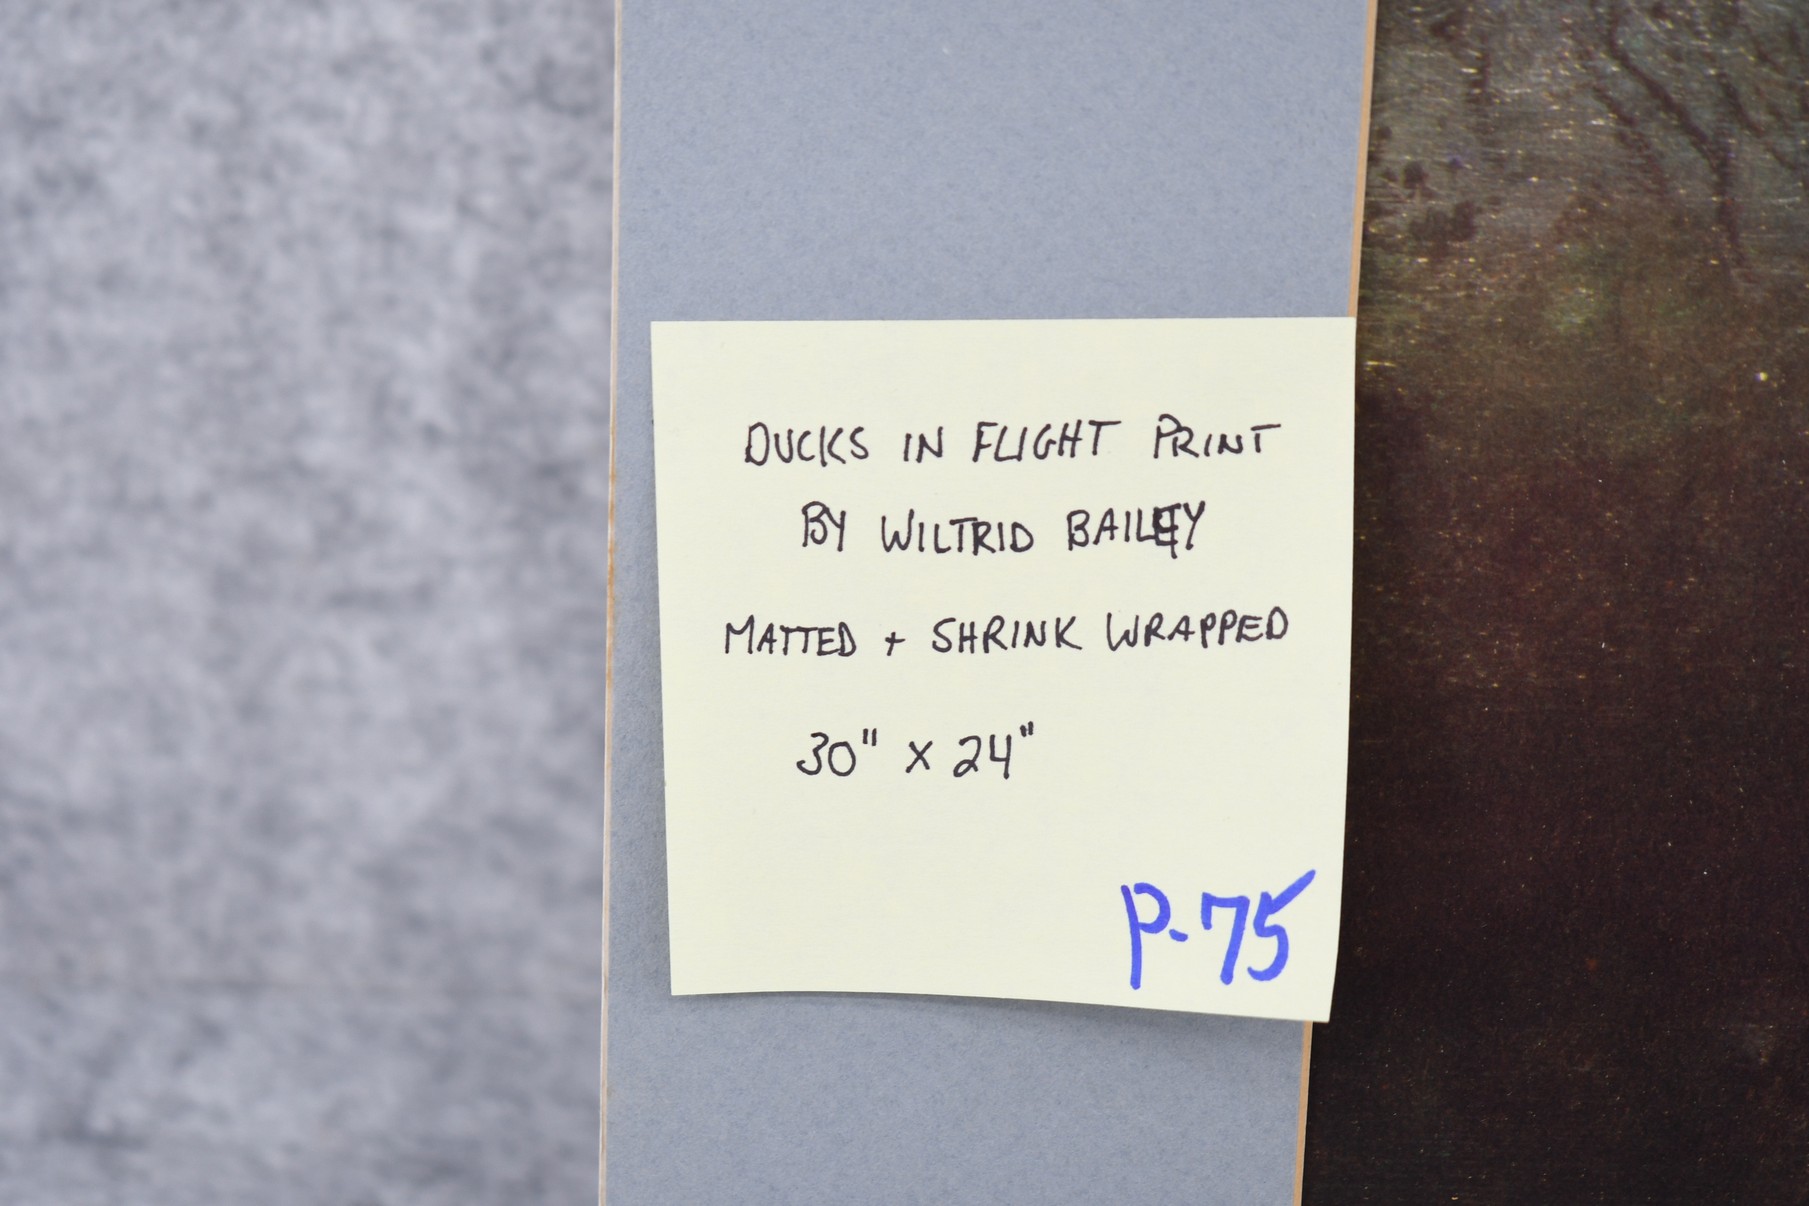 DUCKS IN FLIGHT PRINT
BY WILTRID BAILEY
MATTED + SHRINK WRAPPED
30" x 24"
P-75